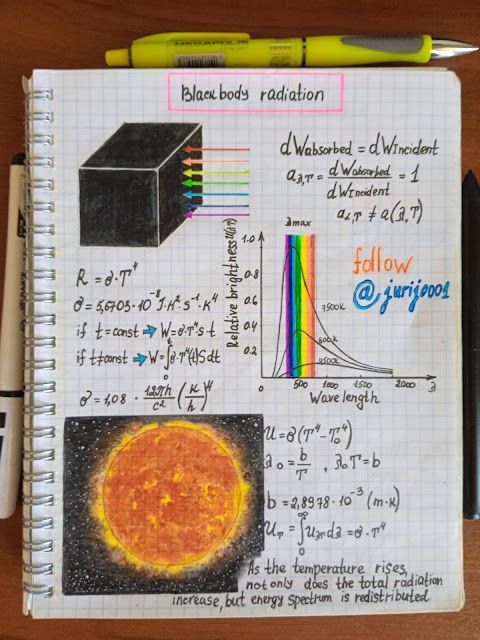 METAPOLIS
Black body radiation
dWabsorbed = dWincident
a λ,T = dWabsorbed / dWincident = 1
a λ,T ≠ a(λ,T)
λmax
Relative brightness U(λT)
1.0
0.8
0.6
0.4
0.2
7500K
600K
4500K
500
1000
1500
2000
λ
Wave length
follow
@jurij0001
R = σ·T⁴
σ = 5,6703·10⁻⁸ J·м²·s⁻¹·K⁴
if t = const ➡ W = σ·T⁴ S t
if t ≠ const ➡ W = ∫₀ᵗ σ·T⁴(t) S dt
σ = 1,08 · 12πh/c² (k/h)⁴
U = σ(T⁴ - T₀⁴)
λ₀ = b/T , λ₀T = b
b = 2,8978·10⁻³ (m·K)
U_T = ∫₀^∞ U λT dλ = σ·T⁴
As the temperature rises,
not only does the total radiation
increase, but energy spectrum is redistributed